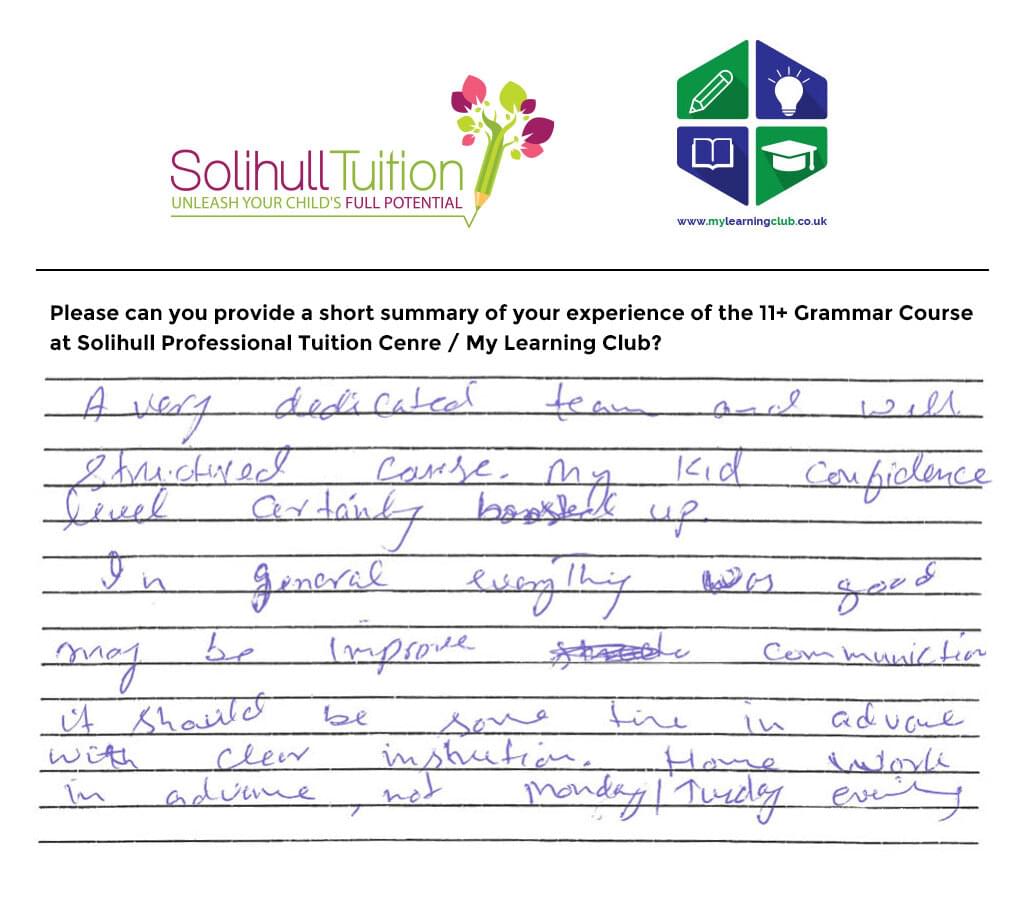 Solihull Tuition
UNLEASH YOUR CHILD'S FULL POTENTIAL
www.mylearningclub.co.uk
Please can you provide a short summary of your experience of the 11+ Grammar Course
at Solihull Professional Tuition Cenre / My Learning Club?
A very dedicated team and well
structured course. My kid confidence
level certainly boosted up.
In general everything was good
may be improve communiction
it should be some time in advance
with clear instruction. Home work
in advance, not Monday/Tuesday evening